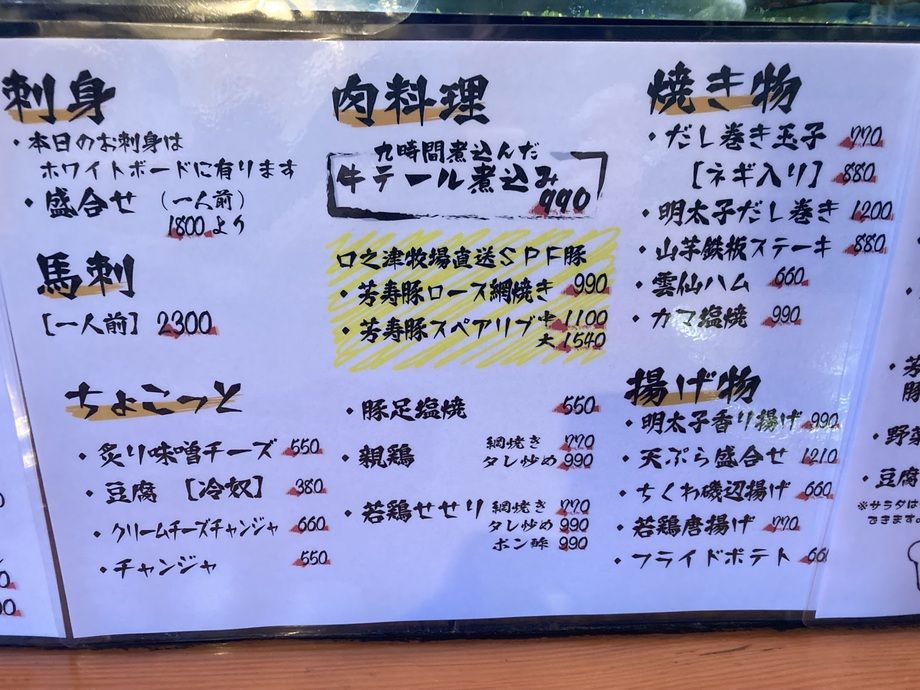 刺身
・本日のお刺身は
ホワイトボードに有ります
・盛合せ（一人前）
1800より
馬刺
［一人前］ 2300
ちょこっと
・炙り味噌チーズ 550
・豆腐 ［冷奴］ 380
・クリームチーズチャンジャ 660
・チャンジャ 550
肉料理
九時間煮込んだ
牛テール煮込み
990
口之津牧場直送SPF豚
・芳寿豚ロース網焼き 990
・芳寿豚スペアリブ 中 1100
大 1540
・豚足塩焼 550
・親鶏 網焼き 770
タレ炒め 990
・若鶏せせり 網焼き 770
タレ炒め 990
ポン酢 990
焼き物
・だし巻き玉子 770
［ネギ入り］ 880
・明太子だし巻き 1200
・山芋鉄板ステーキ 880
・雲仙ハム 660
・カマ塩焼 990
揚げ物
・明太子香り揚げ 990
・天ぷら盛合せ 1210
・ちくわ磯辺揚げ 660
・若鶏唐揚げ 770
・フライドポテト 660
・野菜
・豆腐
※サラダは
できます。